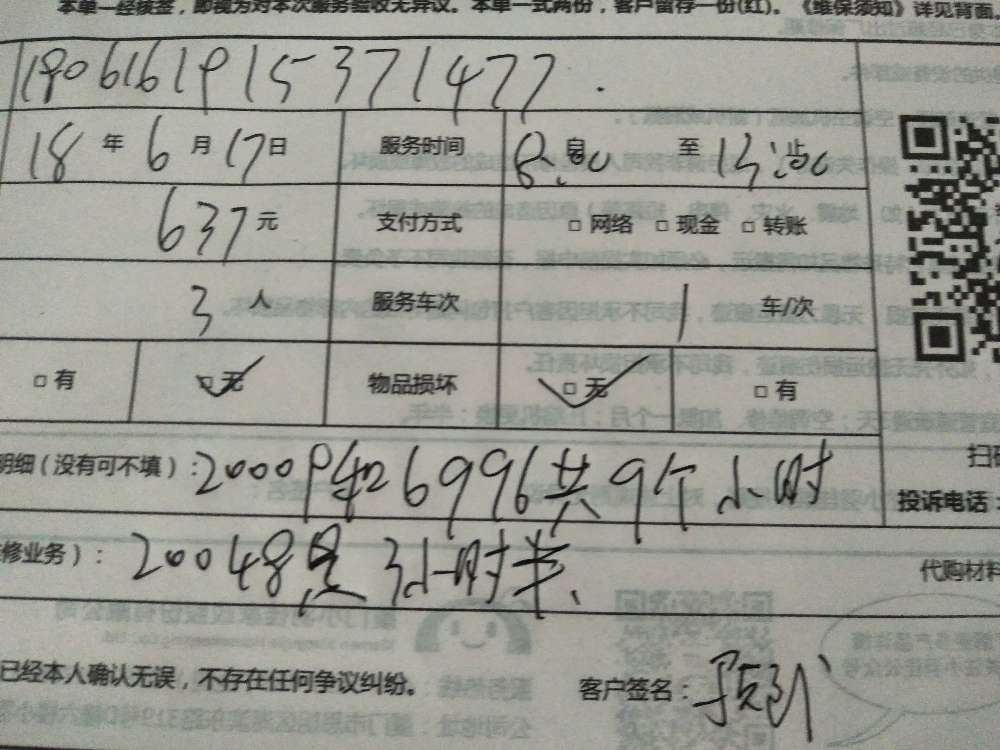 本单一经核签，即视为对本次服务验收无异议。本单一式两份，客户留存一份(红)。《维保须知》详见背面
1906161915371477
18 年 6 月 17 日 服务时间 8:00 自 至 13:00 止
637 元 支付方式 □ 网络 □ 现金 □ 转账
3 人 服务车次 1 车/次
□ 有 □ 无 物品损坏 □ 无 □ 有
扫
明细（没有可不填）：20009和26996共9个小时
投诉电话：
修业务）：20048是3小时半
代购材料
已经本人确认无误，不存在任何争议纠纷。 客户签名：